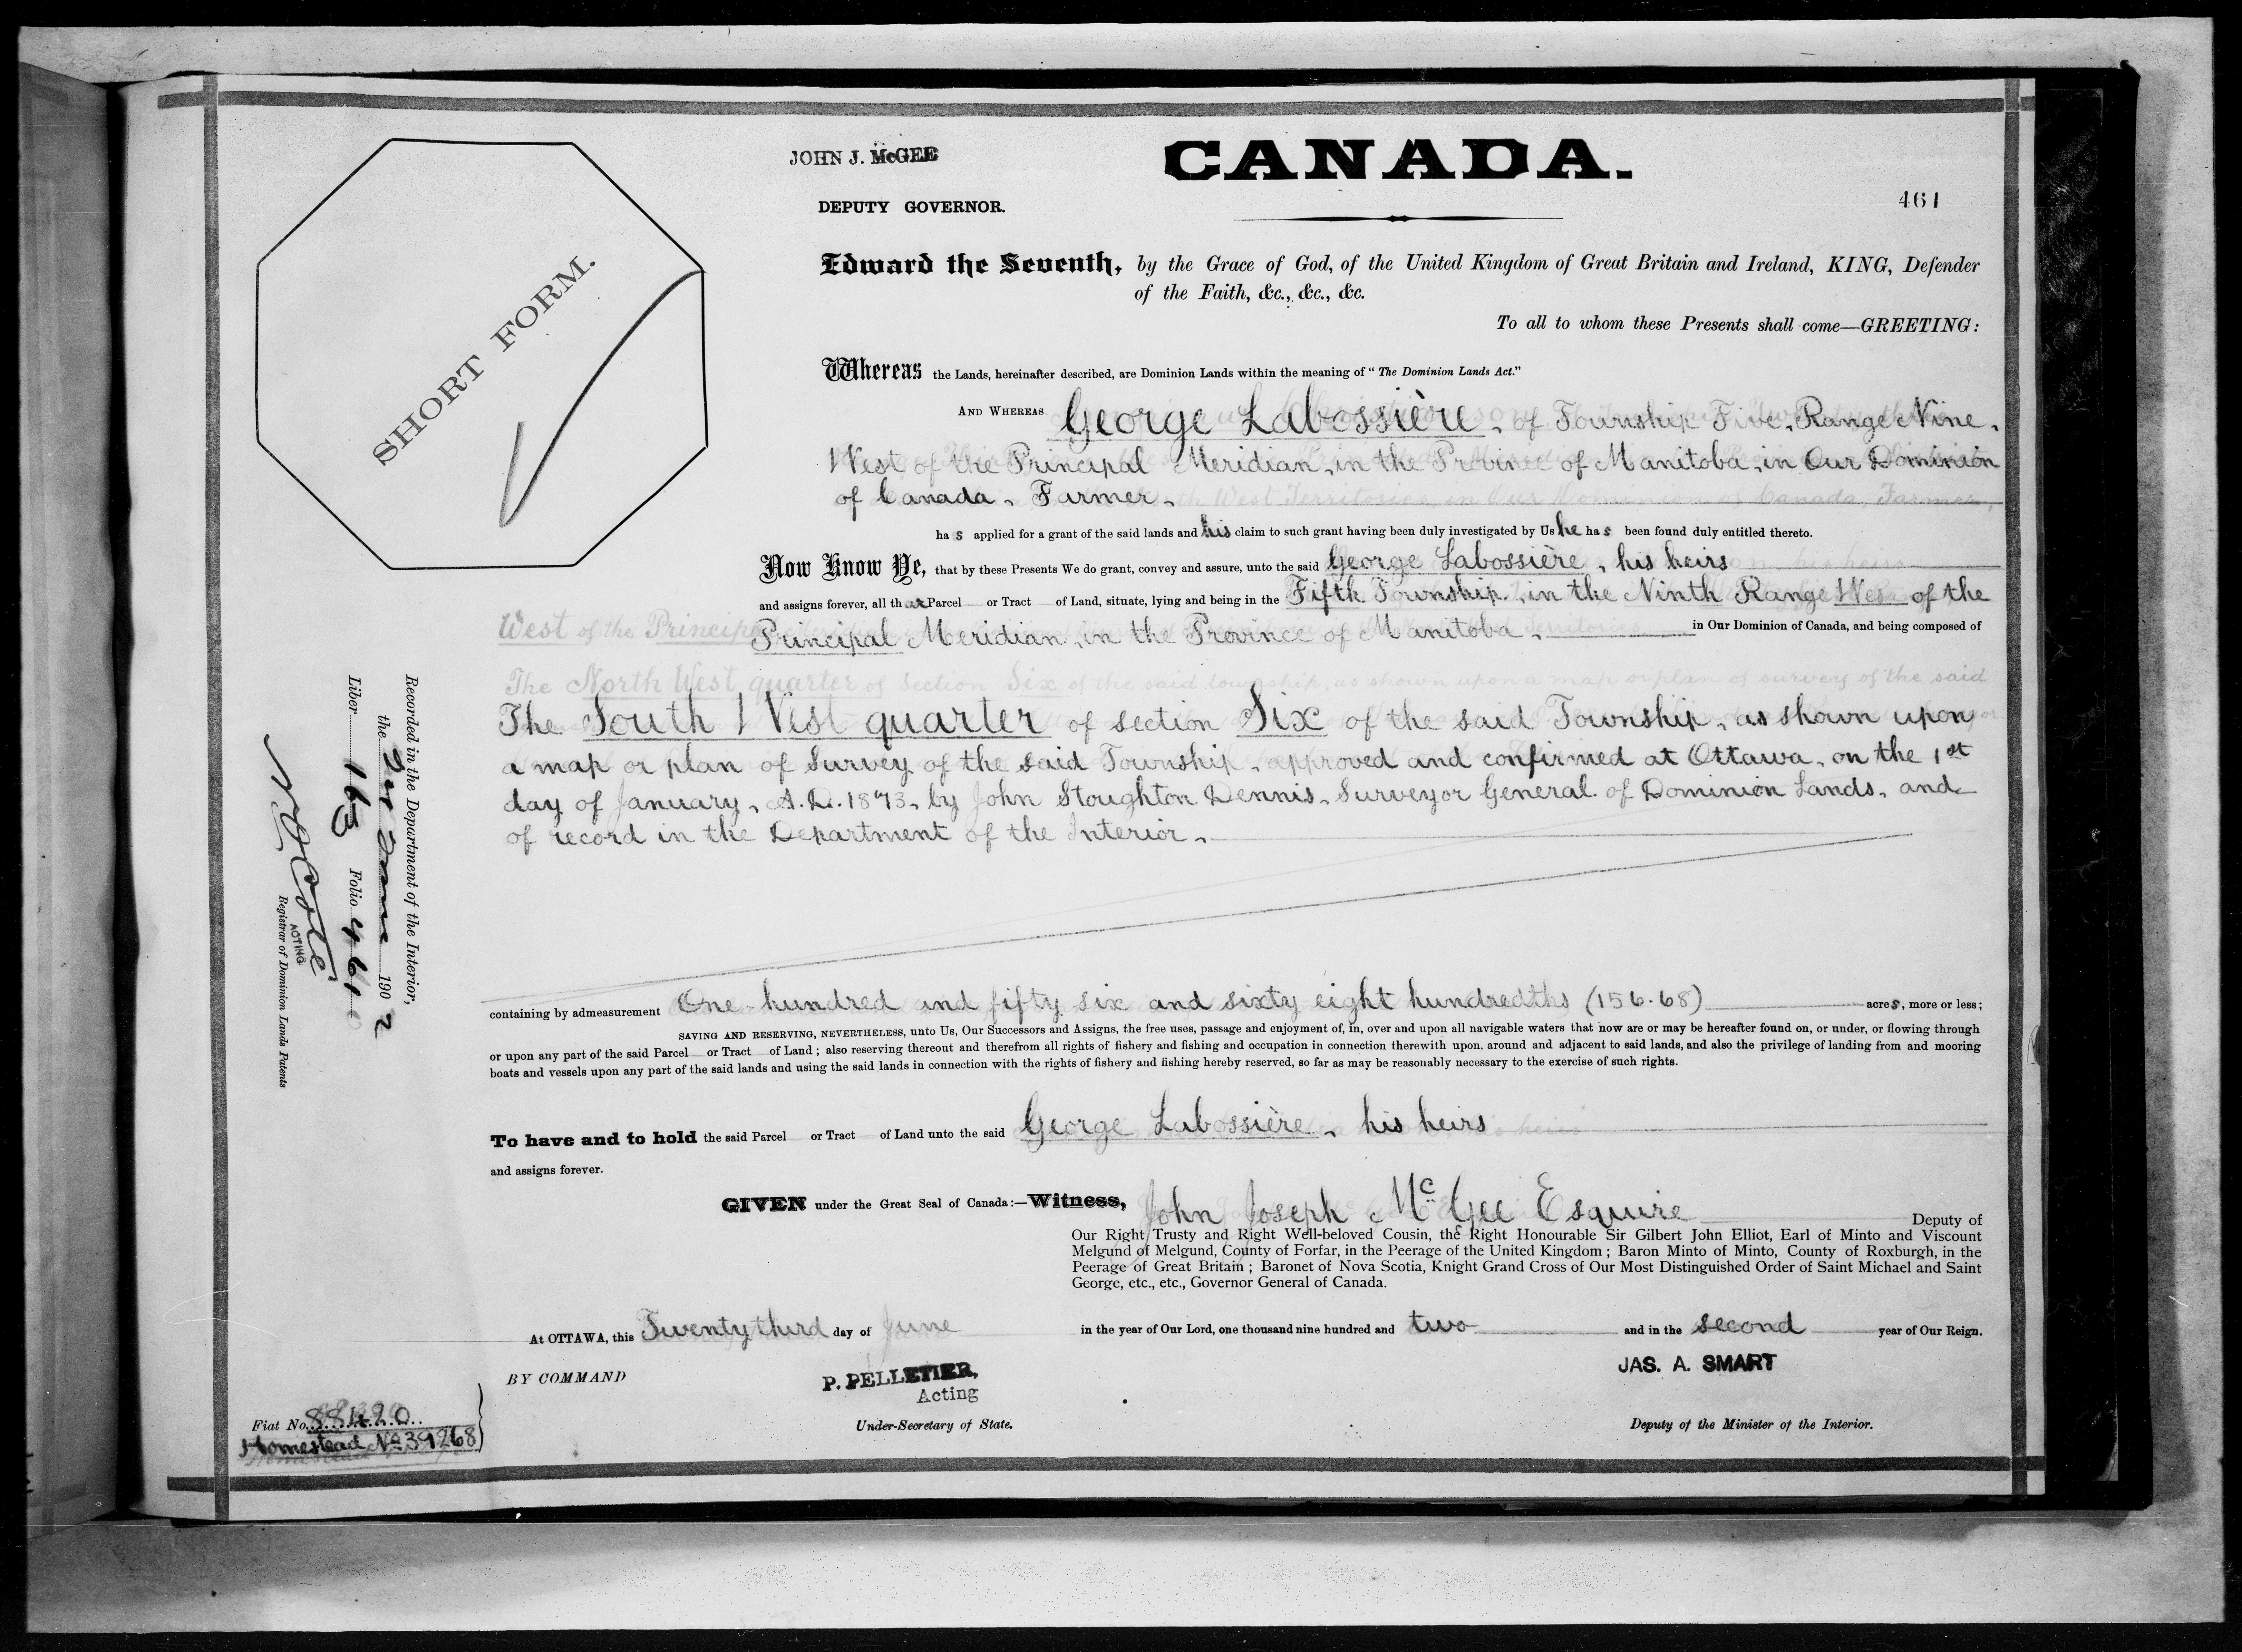 JOHN J. McGEE
CANADA.
DEPUTY GOVERNOR.
461
SHORT FORM.
Edward the Seventh, by the Grace of God, of the United Kingdom of Great Britain and Ireland, KING, Defender
of the Faith, &c., &c., &c.
To all to whom these Presents shall come—GREETING:
Whereas the Lands, hereinafter described, are Dominion Lands within the meaning of "The Dominion Lands Act."
AND WHEREAS George Labossière, of Township Five, Range Nine,
West of the Principal Meridian, in the Province of Manitoba, in Our Dominion
of Canada, Farmer,
ha s applied for a grant of the said lands and his claim to such grant having been duly investigated by Us he ha s been found duly entitled thereto.
Now Know Ye, that by these Presents We do grant, convey and assure, unto the said George Labossière, his heirs
and assigns forever, all th at Parcel or Tract of Land, situate, lying and being in the Fifth Township, in the Ninth Range West of the
Principal Meridian, in the Province of Manitoba, in Our Dominion of Canada, and being composed of
The South West quarter of section Six of the said Township, as shown upon
a map or plan of Survey of the said Township, approved and confirmed at Ottawa, on the 1st
day of January, A.D. 1873, by John Stoughton Dennis, Surveyor General of Dominion Lands, and
of record in the Department of the Interior,
containing by admeasurement One hundred and fifty six and sixty eight hundredths (156.68) acres, more or less;
SAVING AND RESERVING, NEVERTHELESS, unto Us, Our Successors and Assigns, the free uses, passage and enjoyment of, in, over and upon all navigable waters that now are or may be hereafter found on, or under, or flowing through
or upon any part of the said Parcel or Tract of Land; also reserving thereout and therefrom all rights of fishery and fishing and occupation in connection therewith upon, around and adjacent to said lands, and also the privilege of landing from and mooring
boats and vessels upon any part of the said lands and using the said lands in connection with the rights of fishery and fishing hereby reserved, so far as may be reasonably necessary to the exercise of such rights.
To have and to hold the said Parcel or Tract of Land unto the said George Labossière, his heirs
and assigns forever.
GIVEN under the Great Seal of Canada:—Witness, John Joseph McGee Esquire Deputy of
Our Right Trusty and Right Well-beloved Cousin, the Right Honourable Sir Gilbert John Elliot, Earl of Minto and Viscount
Melgund of Melgund, County of Forfar, in the Peerage of the United Kingdom; Baron Minto of Minto, County of Roxburgh, in the
Peerage of Great Britain; Baronet of Nova Scotia, Knight Grand Cross of Our Most Distinguished Order of Saint Michael and Saint
George, etc., etc., Governor General of Canada.
At OTTAWA, this Twenty third day of June in the year of Our Lord, one thousand nine hundred and two and in the second year of Our Reign.
BY COMMAND
P. PELLETIER,
Acting
Under-Secretary of State.
JAS. A. SMART
Deputy of the Minister of the Interior.
Recorded in the Department of the Interior,
the 1902
Liber 165 Folio 461
N O Coté
ACTING
Registrar of Dominion Lands Patents
Fiat No. 88420
Homestead No 39268